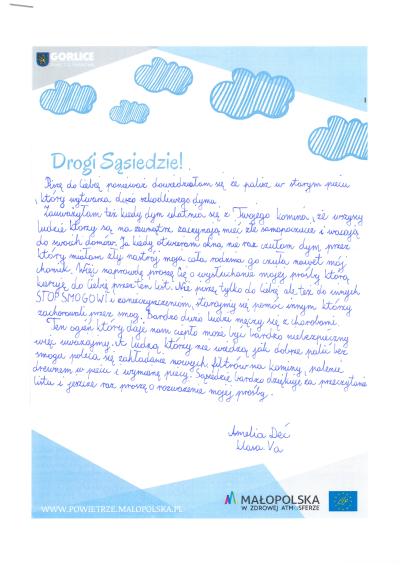 GORLICE
Drogi Sąsiedzie!
Piszę do Ciebie ponieważ dowiedziałam się że palisz w starym piecu
który wytwarza dużo szkodliwego dymu.
Zauważyłam też kiedy dym ulatnia się z Twojego komina, że wszyscy
ludzie którzy są na zewnątrz, zaczynają mieć złe samopoczucie i wracają
do swoich domów. Ja kiedy otwieram okna nie raz czułam dym przez
który miałam zły nastrój moja cała rodzina go czuła nawet mój
chomik. Więc naprawdę proszę Cię o wysłuchanie mojej prośby którą
kieruję do Ciebie przez ten list. Nie piszę tylko do Ciebie ale też do innych
STOP SMOGOWI i zanieczyszczeniom, starajmy się pomóc innym którzy
zachorowali przez smog. Bardzo dużo ludzi męczy się z chorobami.
Ten ogień który daje nam ciepło może być bardzo niebezpieczny
więc uważajmy. A ludzią którzy nie wiedzą jak dobrze palić bez
smogu poleca się zakładanie nowych filtrów na kominy, palenie
drewnem w piecu i wymianę pieca. Sąsiedzie bardzo dziękuję za przeczytanie
listu i jeszcze raz proszę o rozważenie mojej prośby.
Amelia Deć
klasa Va
WWW.POWIETRZE.MALOPOLSKA.PL
MAŁOPOLSKA
W ZDROWEJ ATMOSFERZE